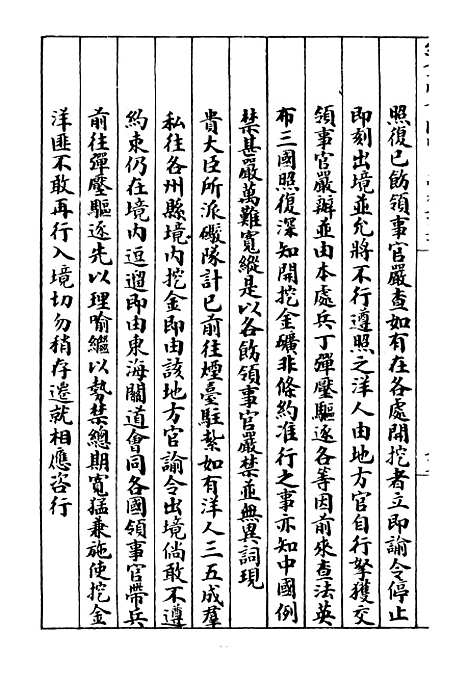 照復已飭領事官嚴查如有在各處開挖者立即諭令停止
即刻出境並允將不行遵照之洋人由地方官自行拏獲交
領事官嚴辦並由本處兵丁彈壓驅逐各等因前來查法英
布三國照復深知開挖金礦非條約准行之事亦知中國例
禁甚嚴萬難寬縱是以各飭領事官嚴禁並無異詞現
貴大臣所派礮隊計已前往煙臺駐紮如有洋人三五成羣
私往各州縣境内挖金即由該地方官諭令出境倘敢不遵
約束仍在境内逗遛即由東海關道會同各國領事官帶兵
前往彈壓驅逐先以理喻繼以勢禁總期寬猛兼施使挖金
洋匪不敢再行入境切勿稍存遷就相應咨行